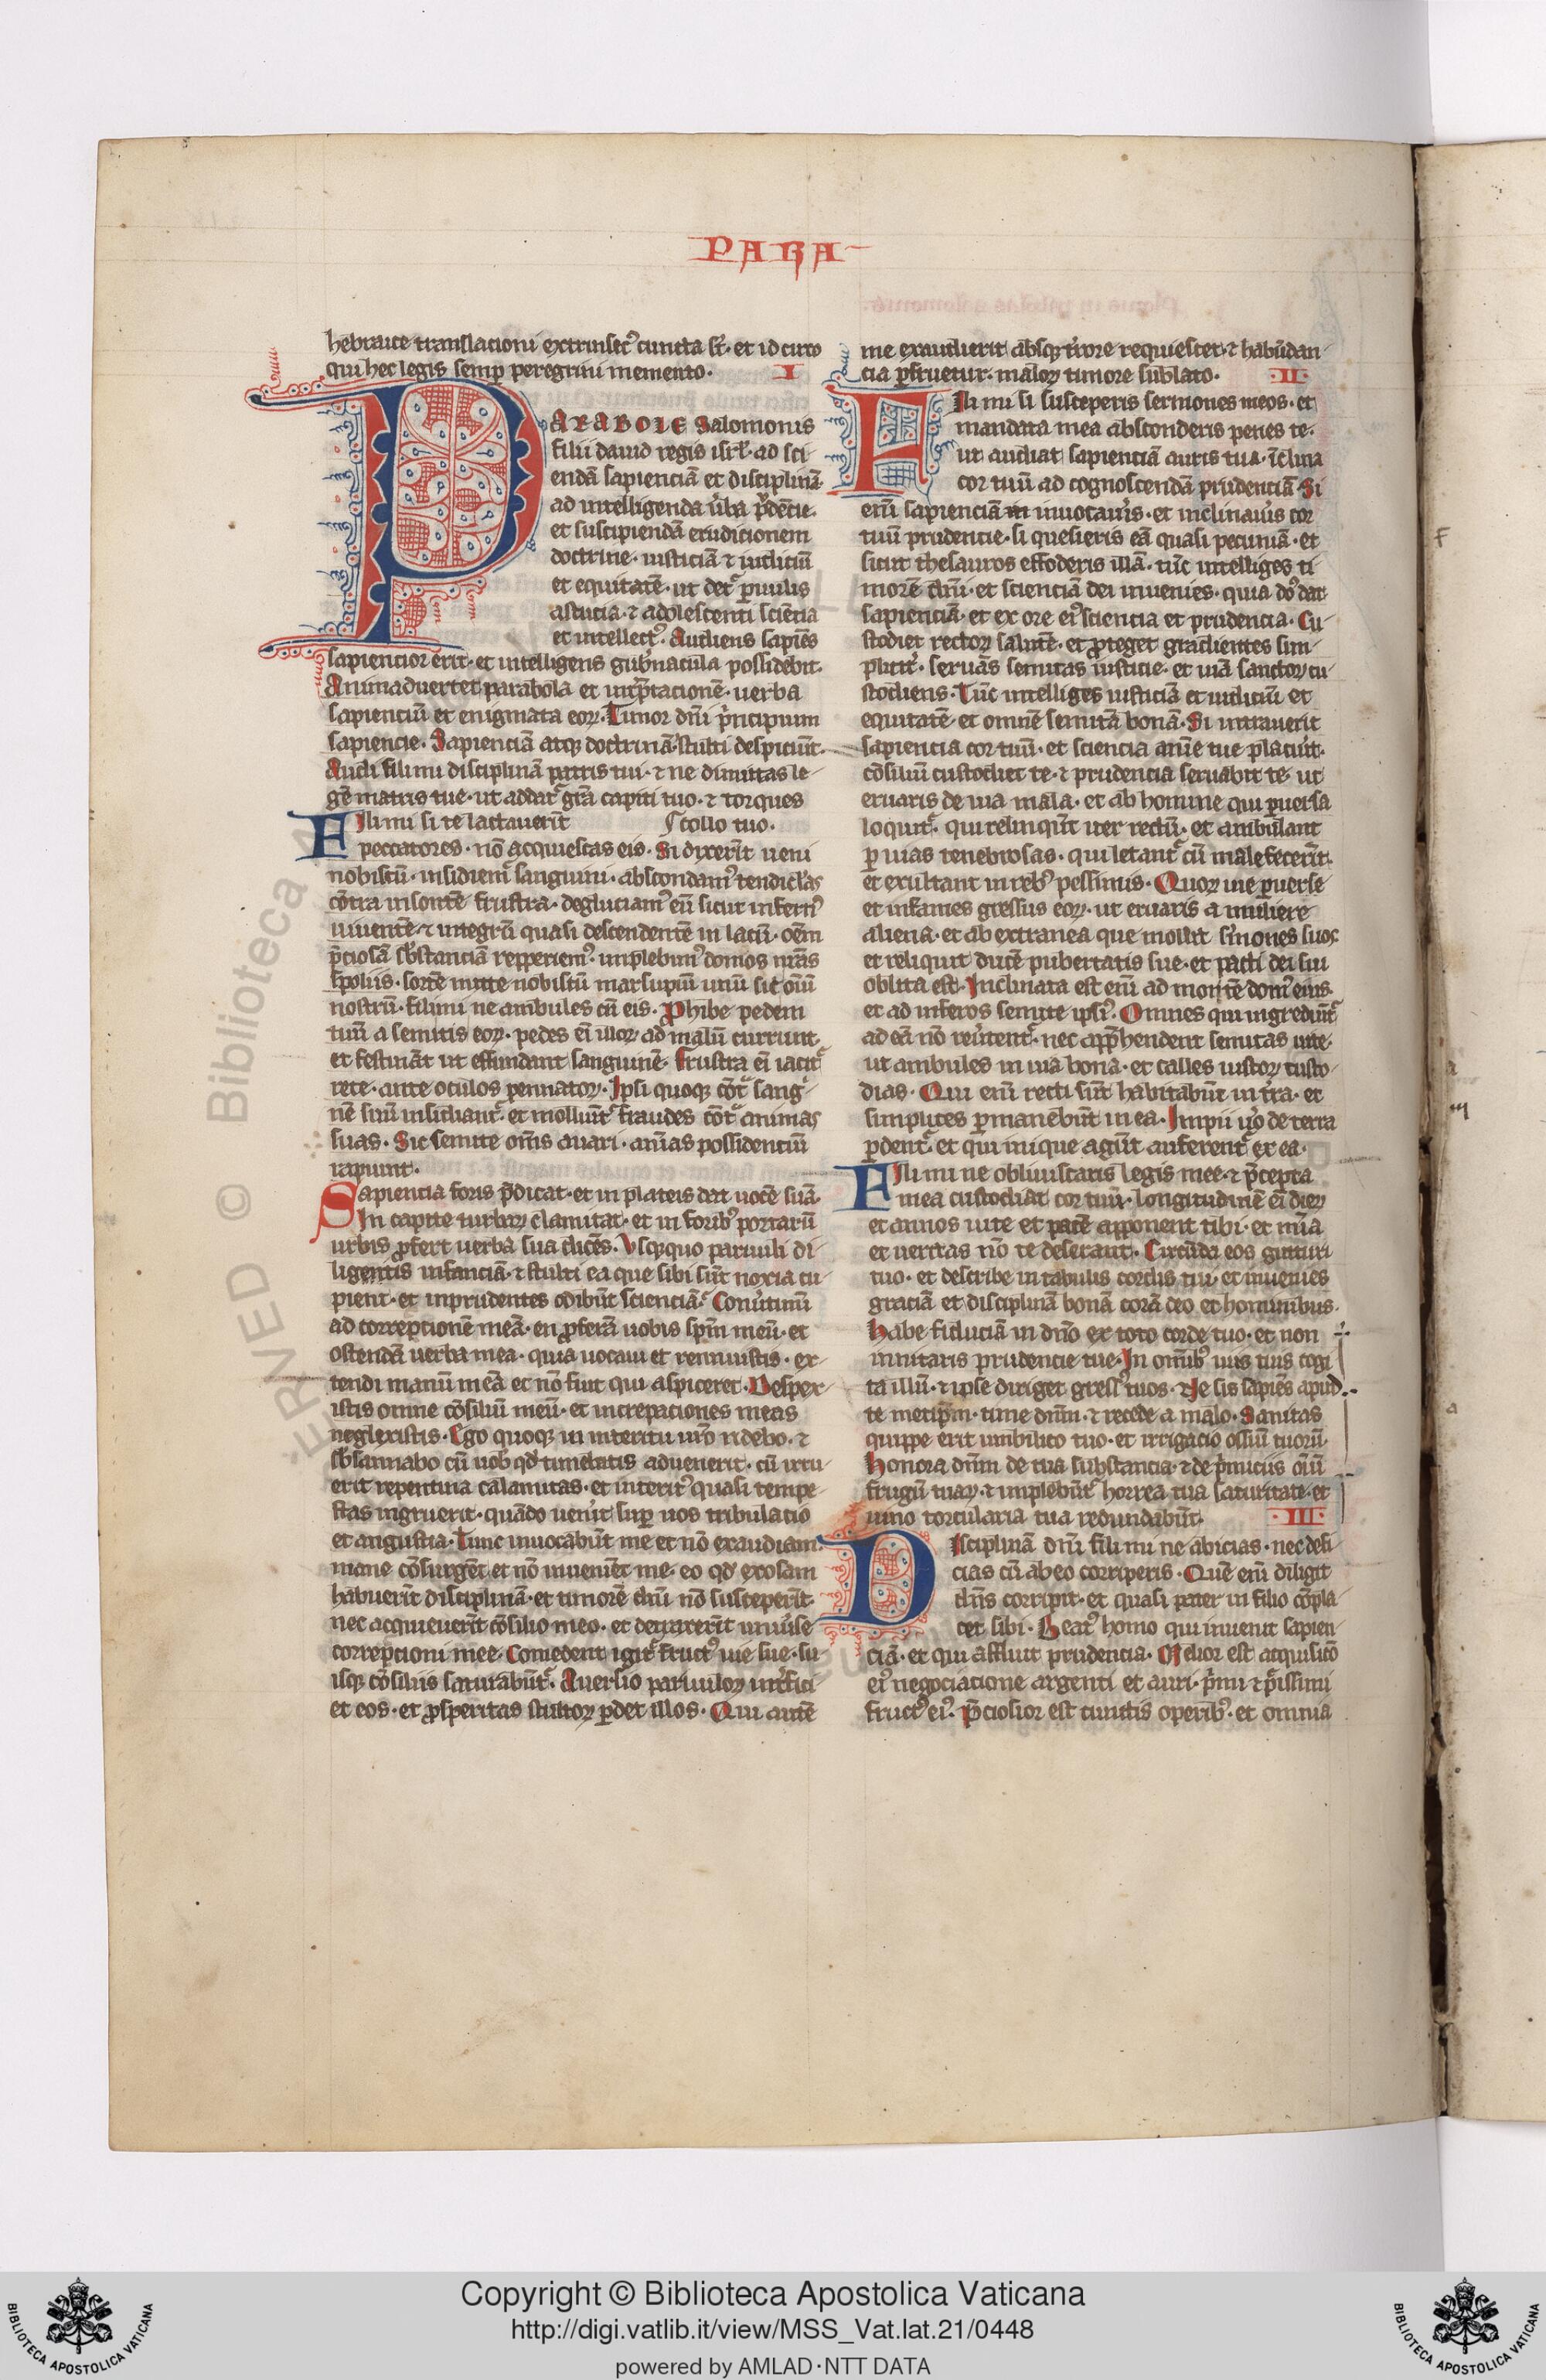 PARA
hebraice translacioni extrinsecꝰ cuncta st̄· et idcirco
qui hec legis semꝑ peregrini memento· I
PARABOLE Salomonis
filii dauid regis isrl̄· ad sci-
endā sapienciā et disciplinā·
ad intelligenda ūba prudēcie·
et suscipiendā erudicionem
doctrine· iusticiā ⁊ iudiciū
et equitatē· ut det᷑ ꝑuulis
astucia· ⁊ adolescenti sciētia
et intellectꝰ· Audiens sapiēs
sapiencior erit· et intelligens gub̄nacula possidebit·
Animaduertet parabolā et int̄p̄tacionē· uerba
sapienciū et enigmata eoꝝ· Timor dn̄i principium
sapiencie· Sapienciā atqꝫ doctrinā stulti despiciūt·
Audi fili mi disciplinā patris tui· ⁊ ne dimittas le-
gē matris tue· ut addat᷑ gr̄a capiti tuo· ⁊ torques
collo tuo·
Fili mi si te lactauerīt
peccatores· nō acquiescas eis· Si dixerīt ueni
nobiscū· insidiem᷑ sanguini· abscondamꝰ tendicl̄as
cōtra insontē frustra· degluciamꝰ eū sicut infernꝰ
uiuentē· ⁊ integrū quasi descendentē in lacū· oēm
p̄ciosā sb̄stanciā repperiemꝰ· implebimꝰ domos nr̄as
spoliis· sortē mitte nobiscū marsupiū unū sit oīū
nostrū· fili mi ne ambules cū eis· Prohibe pedem
tuū a semitis eoꝝ· pedes eī illoꝝ ad malū currunt·
et festināt ut effundant sanguinē· Frustra eī iacit᷑
rete· ante oculos pennatoꝝ· Ipsi quoqꝫ cōt᷑ sang-
nē suū insidiant᷑· et moliūt᷑ fraudes cōt᷑ animas
suas· Sic semite om̄is auari· an̄ias possidentiū
rapiunt·
Sapiencia foris p̄dicat· et in plateis dat uocē suā·
In capite turbaꝝ clamitat· et in foribꝰ portarū
urbis ꝓfert uerba sua dicēs· Vsqꝫquo paruuli di-
ligentis infanciā· ⁊ stulti ea que sibi sūt noxia cu-
pient· et inprudentes odibūt scienciā· Conūtimī
ad correpcionē meā· en ꝓferā uobis spm̄ meū· et
ostendā uerba mea· quia uocaui et rennuistis· ex-
tendi manū meā et nō fuit qui aspiceret· Despex-
istis omne cōsiliū meū· et increpaciones meas
neglexistis· Ego quoqꝫ in interitu ur̄o ridebo· ⁊
sb̄sannabo cū uob̄ qd̄ timebatis aduenerit· cū irru-
erit repentina calamitas· et interitꝰ quasi tempe-
stas ingruerit· quādo uen̄it suꝑ uos tribulatio
et angustia· Tunc inuocabūt me et nō exaudiam·
mane cōsurgēt et nō inueniēt me· eo qd̄ exosam
habuerīt disciplinā· et timorē dn̄i nō susceperīt·
nec acquieuerīt cōsilio meo· et detraxerīt uniūse
correpcioni mee· Comedent igit᷑ fructꝰ uie sue· su-
isqꝫ cōsiliis saturabūt᷑· Auersio paruuloꝝ int̄fici-
et eos· et ꝓsperitas stultoꝝ ꝑdet illos· Qui autē
me exaudierit absqꝫ t̄rore requiescet· ⁊ habūdan-
cia ꝑfruetur· maloꝝ timore sublato· ·II·
Fili mi si susceperis sermones meos· et
mandata mea absconderis penes te·
ut audiat sapienciā auris tua· īclina
cor tuū ad cognoscendā prudenciā· Si
enī sapienciā inuocaūis· et inclinaūis cor
tuū prudencie· si quesieris eā quasi pecuniā· et
sicut thesauros effoderis illā· tūc intelliges ti-
morē dn̄i· et scienciā dei inuenies· quia dn̄s dat
sapienciā· et ex ore eiꝰ sciencia et prudencia· Cu-
stodiet rectoꝝ salutē· et ꝓteget gradientes sim-
plicit᷑· seruās semitas iusticie· et uiā sanctoꝝ cu-
stodiens· Tūc intelliges iusticiā et iudiciū et
equitatē et omnē semitā bonā· Si intrauerit
sapiencia cor tuū· et sciencia anīe tue placuīt·
cōsiliū custodiet te· ⁊ prudencia seruabit te· ut
eruaris de uia mala· et ab homine qui ꝑuersa
loquit᷑· qui relinqūt iter rectū· et ambulant
ꝑ uias tenebrosas· qui letant᷑ cū male fecerīt·
et exultant in rebꝰ pessimis· Quoꝝ uie ꝑuerse
et infames gressus eoꝝ· ut eruaris a muliere
aliena· et ab extranea que mollit s̄mones suos
et reliquit ducē pubertatis sue· et pacti dei sui
oblita est· Inclinata est enī ad mortē domꝰ eius·
et ad inferos semite ipsiꝰ· Omnes qui ingrediūt᷑
ad eā nō reūtent᷑· nec appn̄hendent semitas uite·
ut ambules in uia bona· et calles iustoꝝ custo-
dias· Qui enī recti sūt habitabūt in t̄ra· et
simplices ꝑmanebūt in ea· Impii uo̅ de terra
ꝑdent᷑· et qui inique agūt auferent᷑ ex ea·
Fili mi ne obliuiscaris legis mee· ⁊ p̄cepta
mea custodiat cor tuū· longitudinē eī dieꝝ
et annos uite et pacē apponent tibi· et mīa
et ueritas nō te deserant· Circūda eos gutturi
tuo· et describe in tabulis cordis tui· et inuenies
graciā et disciplinā bonā corā deo et hominibus·
Habe fiduciā in dn̄o ex toto corde tuo· et non
innitaris prudencie tue· In om̄ibꝰ uiis tuis cogi-
ta illū· ⁊ ipse diriget gressꝰ tuos· Ne sis sapiēs apud
te metip̄m· time dn̄m· ⁊ recede a malo· Sanitas
quippe erit umbilico tuo· et irrigacio ossiū tuorū·
Honora dn̄m de tua substancia· ⁊ de p̄miciis oīū
frugū tuaꝝ· ⁊ implebūt᷑ horrea tua saturitate· et
uino torcularia tua redundabūt· ·III·
Disciplinā dn̄i fili mi ne abicias· nec defi-
cias cū ab eo corriperis· Quē enī diligit
dn̄s corripit· et quasi pater in filio cōpla-
cet sibi· Beatꝰ homo qui inuenit sapien-
ciā· et qui affluit prudencia· Melior est acquisicō
eiꝰ negociacione argenti et auri· p̄mi ⁊ p̄issimi
fructꝰ eiꝰ· P̄ciosior est cunctis operibꝰ· et omnia
ERVED © Biblioteca
Copyright © Biblioteca Apostolica Vaticana
http://digi.vatlib.it/view/MSS_Vat.lat.21/0448
powered by AMLAD·NTT DATA
BIBLIOTECA APOSTOLICA VATICANA
BIBLIOTECA APOSTOLICA VATICANA